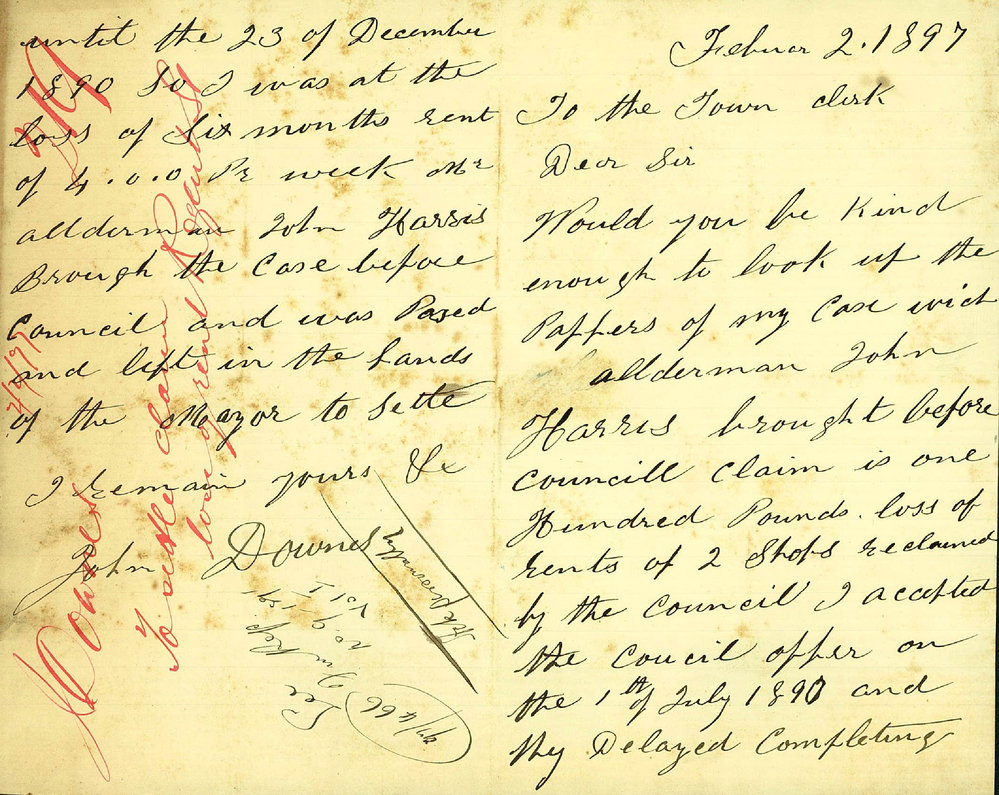 Febuar 2. 1897
To the Town clerk
Dear Sir
Would you be Kind
enough to look up the
Paffers of my Case wich
allderman John
Harris brought before
Councill Claim is one
Hundred Pounds. loss of
rents of 2 Shops reclaimed
by the Council I accepted
the Coucil offer on
the 1th of July 1890 and
thy Delayed Completing
until the 23 of December
1890 So I was at the
loss of Six months rent
of 4.0.0 Pr week Mr
allderman John Harris
Brough the Case before
Council and was Pased
and left in the hands
of the Mayor to Sette
I Remain yours &c
John Downes
J Downes
To settle claim
loss of rent Regent St
2/2/97
See Gen Rep
No. 9 - 1891
Vol 1
97/466